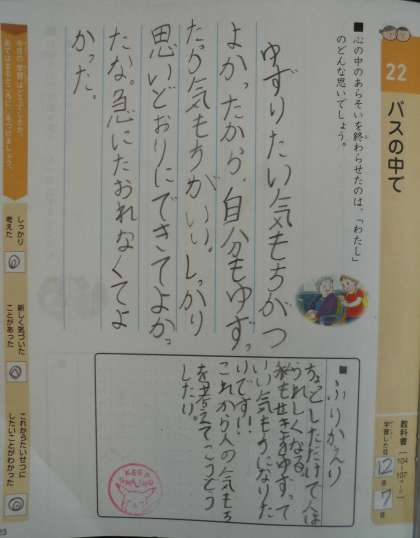 22
バスの中で
教科書
104
107
ページ
学習した日
12
月
7
日
■心の中のあらそいを終わらせたのは、「わたし」
のどんな思いでしょう。
ゆずりたい気もちがつ
よかったから、自分もゆずっ
たら気もちがいい。しっかり
思いどおりにできてよかっ
たな。急にたおれなくてよ
かった。
■ふりかえり
ちょっとしただけで人は
うれしくなる
私もせきをゆずって
いい気もちになりた
いです!!
これから人の気もち
を考えてこうどう
したい。
今日の学習はどうでしたか。
しっかり
考えた
新しく気づいた
ことがあった
これからたいせつに
したいことがわかった
23